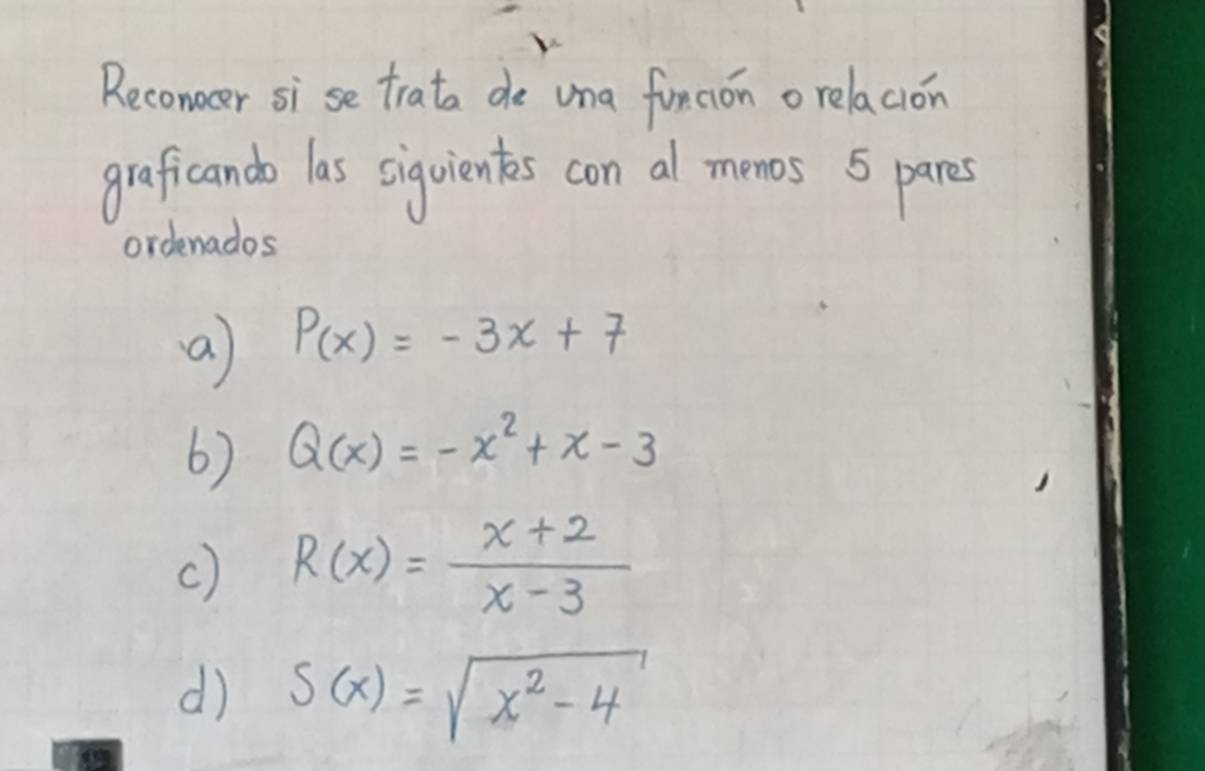 Reconocer si se trata de una función o relación
graficando las siguientes con al menos 5 pares
ordenados
a) P(x) = - 3x + 7
b) Q(x) = - x² + x - 3
c) R(x) = \frac{x + 2}{x - 3}
d) S(x) = \sqrt{x² - 4}